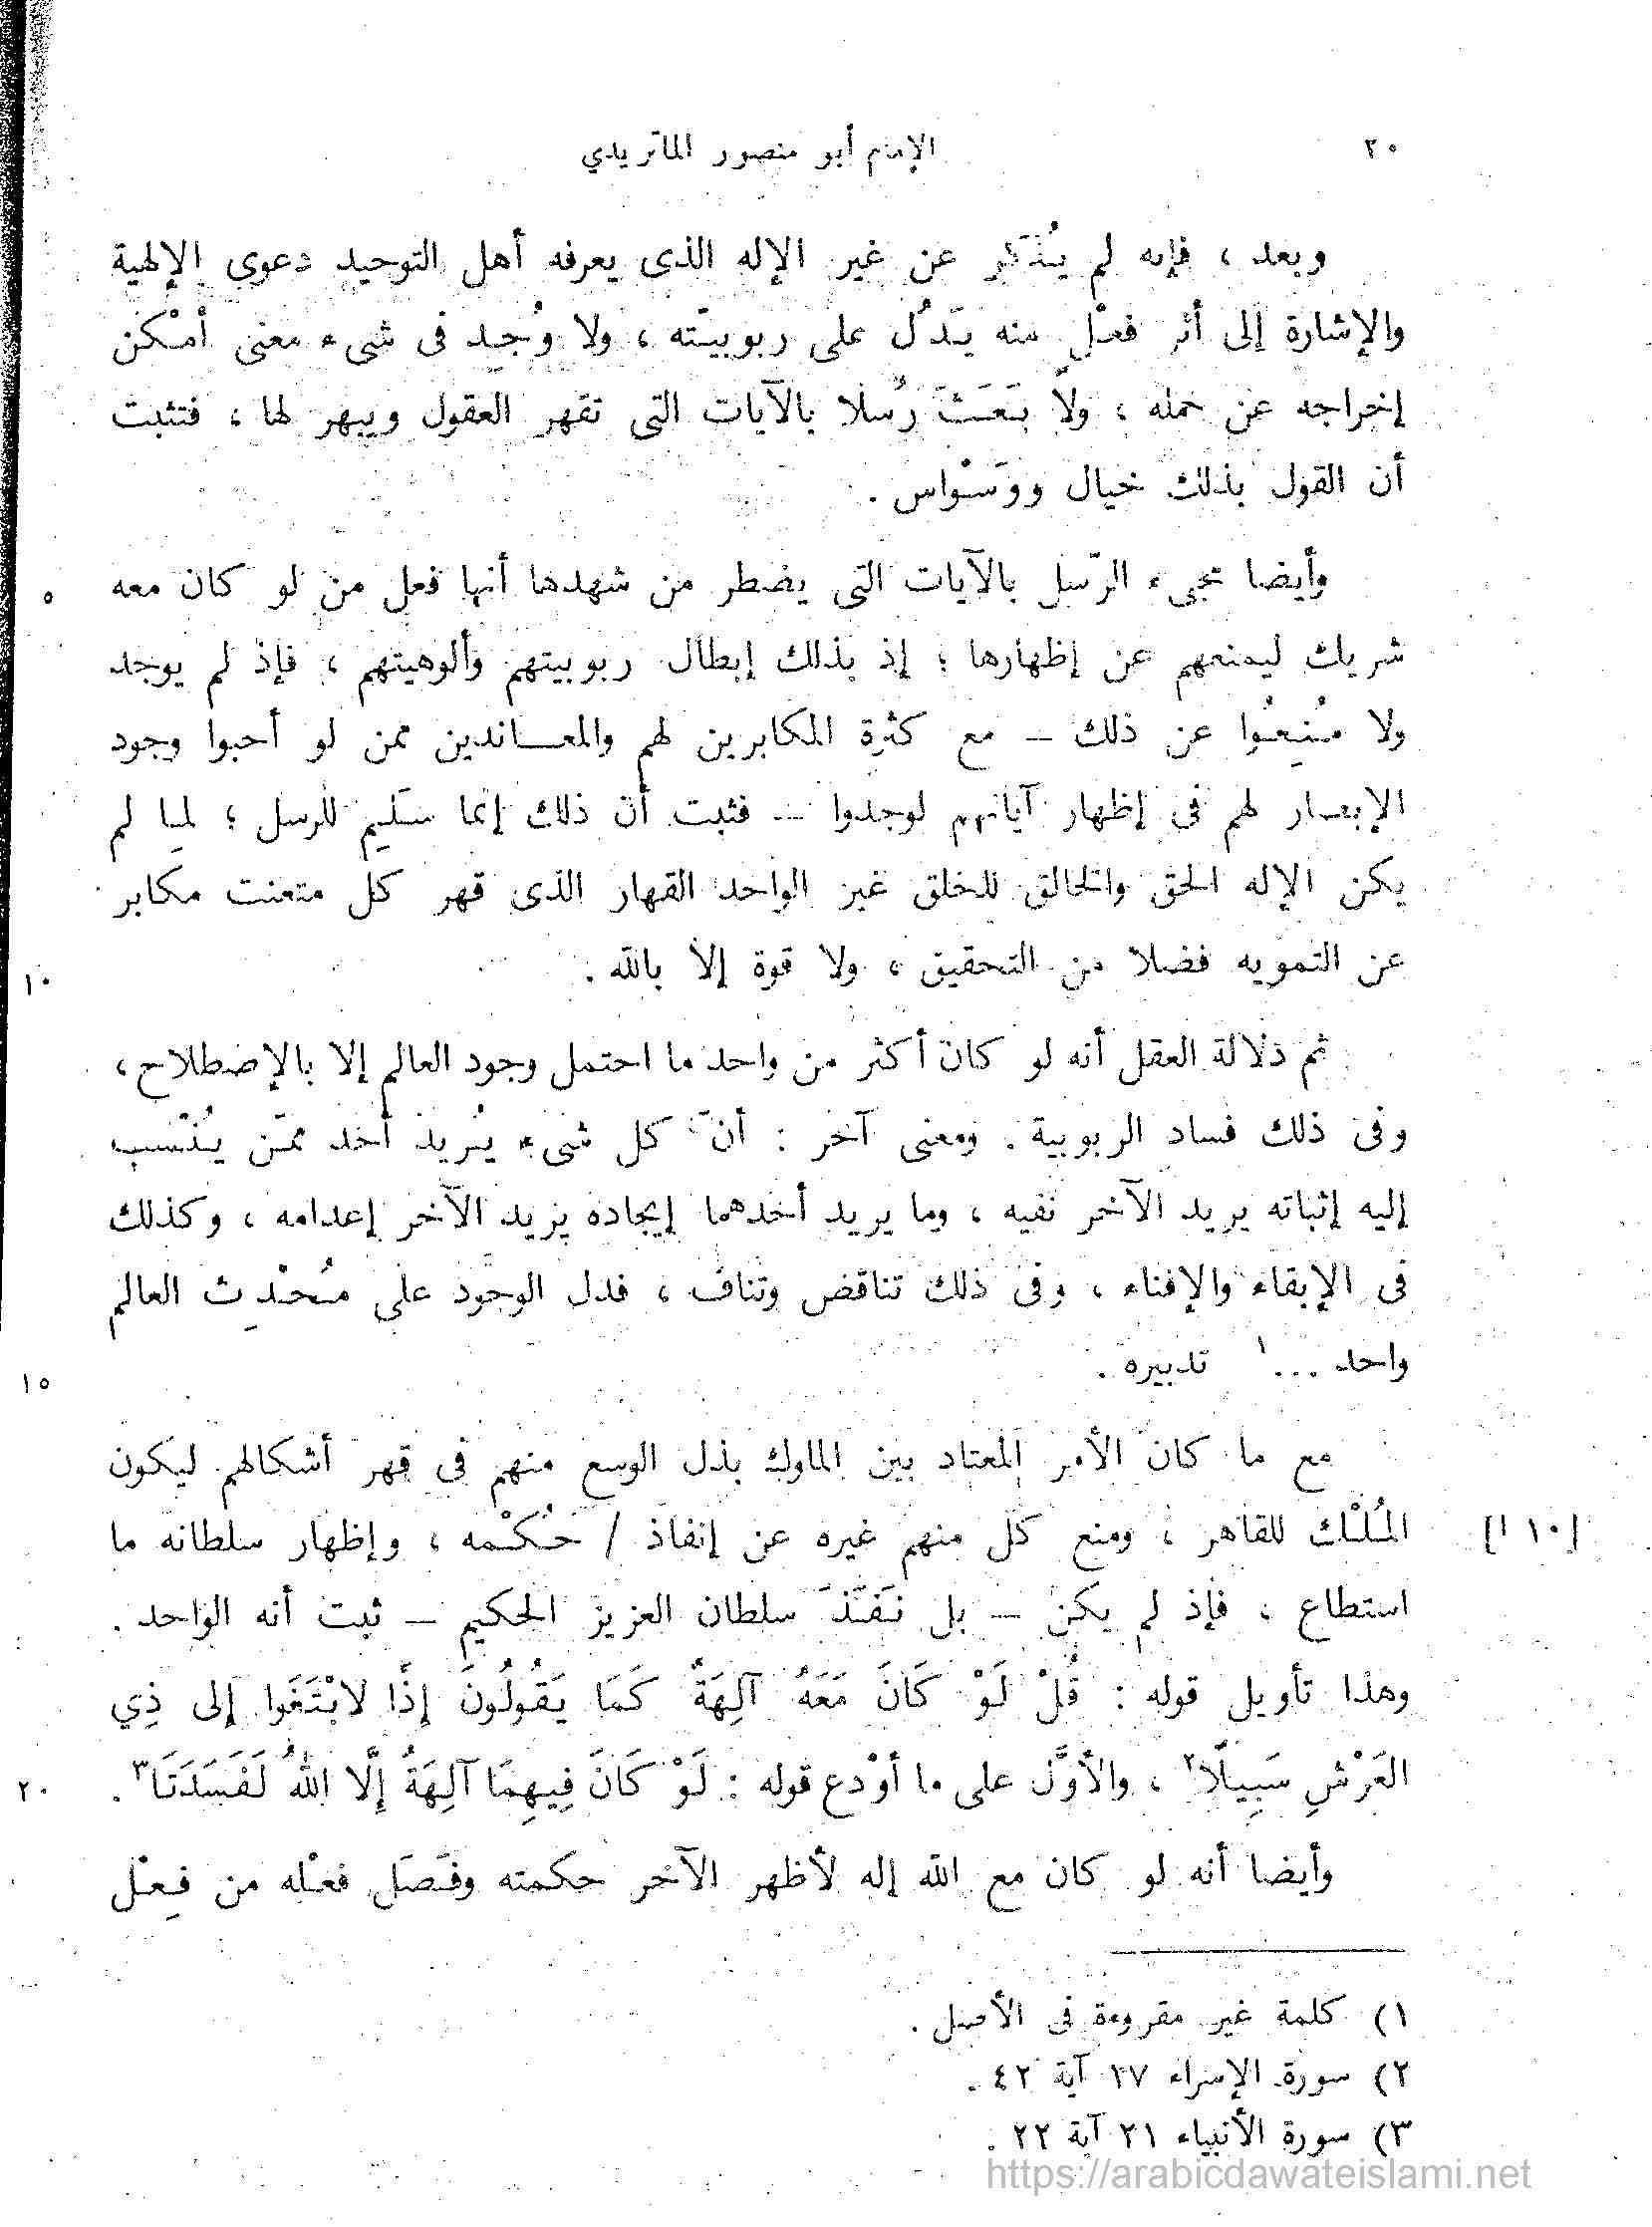 ٢٠
الإمام أبو منصور الماتريدي
وبعد ، فإنه لم يُذْكر عن غير الإله الذى يعرفه أهل التوحيد دعوى الإلهية
والإشارة إلى أثر فعْل منه يَدُل على ربوبيّته ، ولا وُجِد فى شىء معنى أمْكن
إخراجه عن حمله ، ولا بَعَثَ رُسلا بالآيات التى تقهر العقول ويبهر لها ، فتثبت
أن القول بذلك خيال ووَسْواس .
وأيضا مجىء الرّسل بالآيات التى يضطر من شهدها أنها فعل من لو كان معه
٥
شريك ليمنعهم عن إظهارها ؛ إذ بذلك إبطال ربوبيتهم وألوهيتهم ، فإذ لم يوجد
ولا مُنِعُوا عن ذلك – مع كثرة المكابرين لهم والمعاندين ممن لو أحبوا وجود
الإبصار لهم فى إظهار آياتهم لوجدوا – فثبت أن ذلك إنما سَلِيم للرسل ؛ لما لم
يكن الإله الحق والخالق للخلق غير الواحد القهار الذى قهر كل متعنت مكابر
عن التمويه فضلا من التحقيق ، ولا قوة إلا بالله .
١٠
ثم دلالة العقل أنه لو كان أكثر من واحد ما احتمل وجود العالم إلا بالإصطلاح ،
وفى ذلك فساد الربوبية . ومعنى آخر : أنّ كل شىء يُريد أحد ممّن يُنْسب
إليه إثباته يريد الآخر نفيه ، وما يريد أحدهما إيجاده يريد الآخر إعدامه ، وكذلك
فى الإبقاء والإفناء ، وفى ذلك تناقض وتناف ، فدل الوجود على مُحْدِث العالم
واحد ...١ تدبيره .
١٥
مع ما كان الأمر المعتاد بين الملوك بذل الوسع منهم فى قهر أشكالهم ليكون
المُلْك للقاهر ، ومنع كل منهم غيره عن إنفاذ / حُكْمه ، وإظهار سلطانه ما
[١٠ ا]
استطاع ، فإذ لم يكن – بل نَفَذَ سلطان العزيز الحكيم – ثبت أنه الواحد .
وهذا تأويل قوله : قُلْ لَوْ كَانَ مَعَهُ آلِهَةٌ كَمَا يَقُولُونَ إذًا لابْتَغَوا إلى ذِي
العَرْشِ سَبِيلًا٢ ، والأوَّل على ما أوْدع قوله : لَوْ كَانَ فِيهِمَا آلِهَةُ إلَّا اللهُ لَفَسَدَتَا٣ .
٢٠
وأيضا أنه لو كان مع الله إله لأظهر الآخر حكمته وفَصَل فعْله من فِعْل
١) كلمة غير مقروءة فى الأصل .
٢) سورة الإسراء ١٧ آية ٤٢ .
٣) سورة الأنبياء ٢١ آية ٢٢ .
https://arabicdawateislami.net